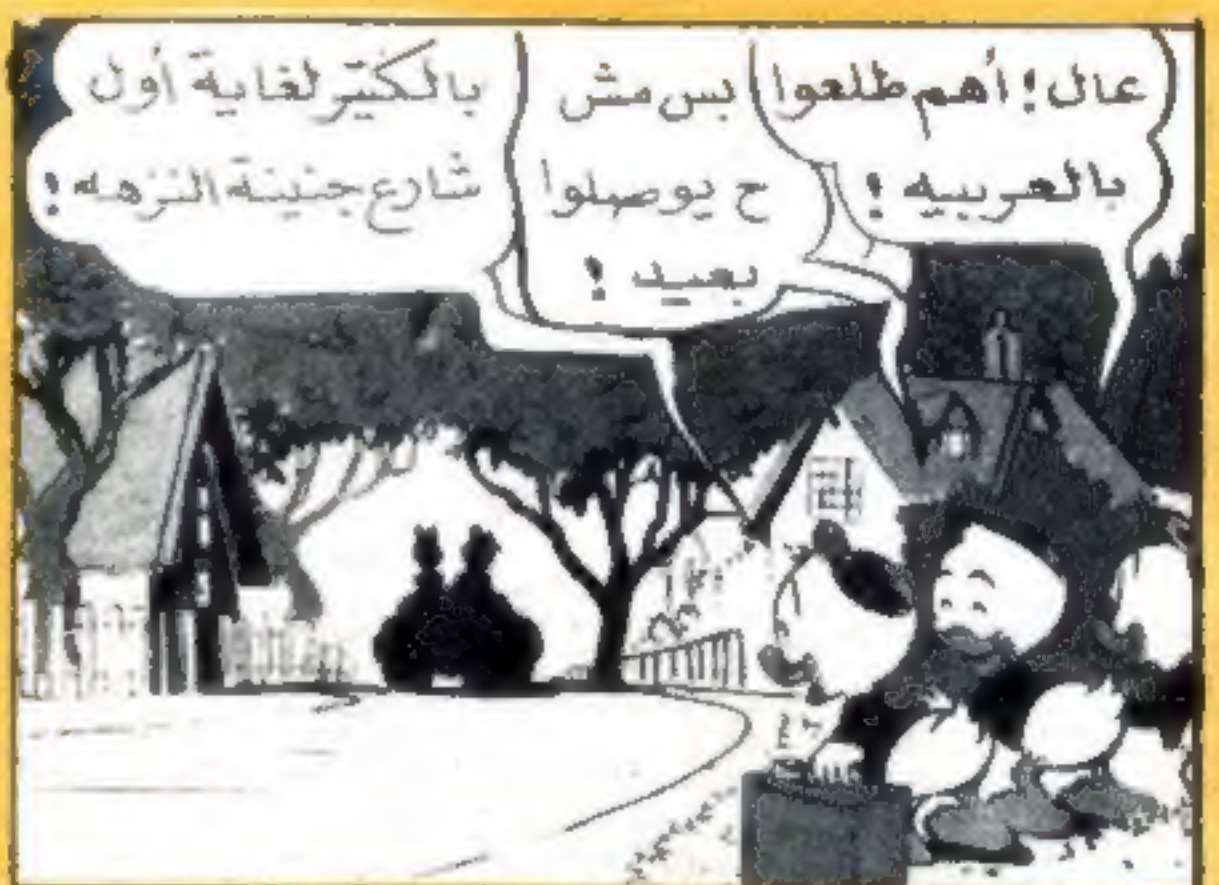 عال! أهم طلعوا
بالعربيه!
بس مش
ح يوصلوا
بعيد!
بالكتير لغاية أول
شارع جنينة النزهه!